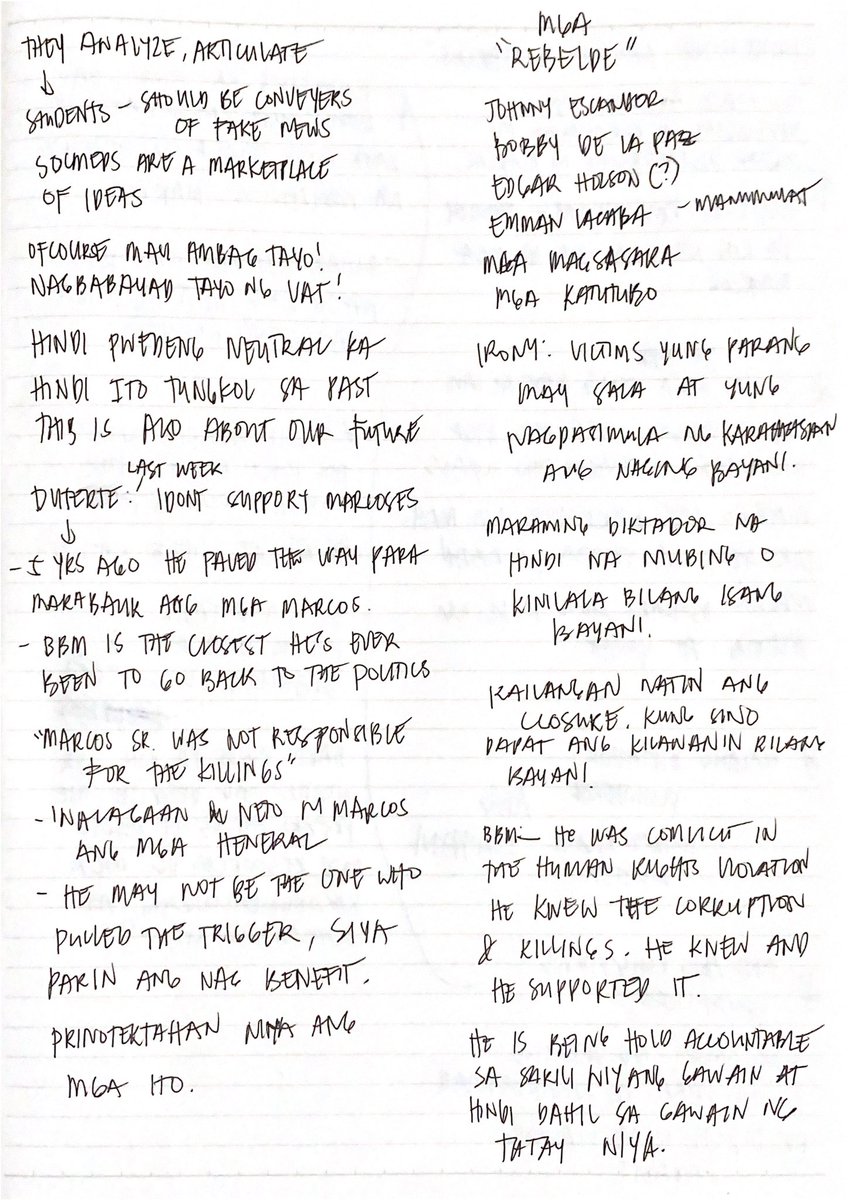 THEY ANALYZE, ARTICULATE
↓
STUDENTS - SHOULD BE CONVEYERS
OF FAKE NEWS
SOCMEDS ARE A MARKETPLACE
OF IDEAS
OFCOURSE MAY AMBAG TAYO!
NAGBABAYAD TAYO NG VAT!
HINDI PWEDENG NEUTRAL KA
HINDI ITO TUNGKOL SA PAST
THIS IS ALSO ABOUT OUR FUTURE
LAST WEEK
DUTERTE: I DONT SUPPORT MARCOSES
↓
- 5 YRS AGO HE PAVED THE WAY PARA
MAKABALIK ANG MGA MARCOS.
- BBM IS THE CLOSEST HE'S EVER
BEEN TO GO BACK TO THE POLITICS
"MARCOS SR. WAS NOT RESPONSIBLE
FOR THE KILLINGS"
- INALAGAAN NI MARCOS
ANG MGA HENERAL
- HE MAY NOT BE THE ONE WHO
PULLED THE TRIGGER, SIYA
PARIN ANG NAG BENEFIT.
PRINOTEKTAHAN NIYA ANG
MGA ITO.
MGA
"REBELDE"
JOHNNY ESCANDOR
BOBBY DE LA PAZ
EDGAR (?)
EMMAN LACABA - MANUNULAT
MGA MAGSASAKA
MGA KATUTUBO
IRONY: VICTIMS YUNG PARANG
MAY SALA AT YUNG
NAGPASIMULA NG KARAHASAN
ANG NAGING BAYANI.
MARAMING DIKTADOR NA
HINDI NA O
KINILALA BILANG ISANG
BAYANI.
KAILANGAN NATIN ANG
CLOSURE. KUNG SINO
DAPAT ANG KILALANIN BILANG
BAYANI.
BBM - HE WAS COMPLICIT IN
THE HUMAN RIGHTS VIOLATION
HE KNEW THE CORRUPTION
& KILLINGS. HE KNEW AND
HE SUPPORTED IT.
HE IS BEING HOLD ACCOUNTABLE
SA SARILI NIYANG GAWAIN AT
HINDI DAHIL SA GAWAIN NG
TATAY NIYA.